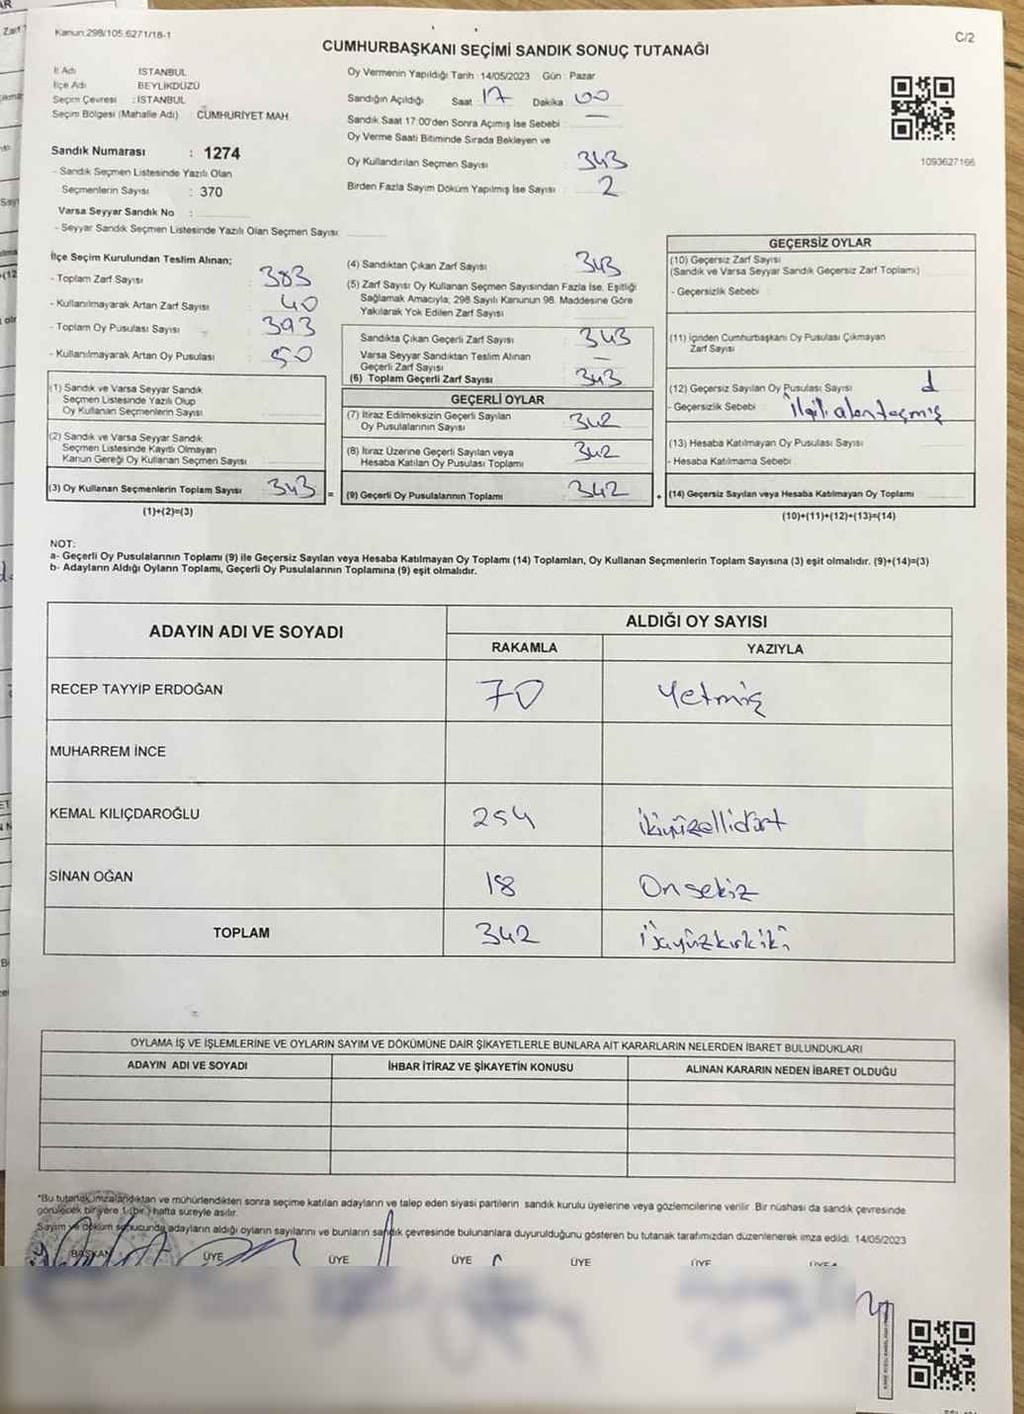 Kanun:298/105.6271/18-1
C/2
CUMHURBAŞKANI SEÇİMİ SANDIK SONUÇ TUTANAĞI
İl Adı İSTANBUL
İlçe Adı BEYLİKDÜZÜ
Seçim Çevresi : İSTANBUL
Seçim Bölgesi (Mahalle Adı) CUMHURİYET MAH.
Sandık Numarası : 1274
- Sandık Seçmen Listesinde Yazılı Olan
Seçmenlerin Sayısı : 370
Varsa Seyyar Sandık No :
- Seyyar Sandık Seçmen Listesinde Yazılı Olan Seçmen Sayısı:
Oy Vermenin Yapıldığı Tarih : 14/05/2023 Gün : Pazar
Sandığın Açıldığı Saat 17 Dakika 00
Sandık Saat 17:00'den Sonra Açımış İse Sebebi : —
Oy Verme Saati Bitiminde Sırada Bekleyen ve
Oy Kullandırılan Seçmen Sayısı 343
Birden Fazla Sayım Döküm Yapılmış İse Sayısı 2
1093627166
İlçe Seçim Kurulundan Teslim Alınan;
- Toplam Zarf Sayısı 383
- Kullanılmayarak Artan Zarf Sayısı 40
- Toplam Oy Pusulası Sayısı 393
- Kullanılmayarak Artan Oy Pusulası 50
(1) Sandık ve Varsa Seyyar Sandık
Seçmen Listesinde Yazılı Olup
Oy Kullanan Seçmenlerin Sayısı
(2) Sandık ve Varsa Seyyar Sandık
Seçmen Listesinde Kayıtlı Olmayan
Kanun Gereği Oy Kullanan Seçmen Sayısı
(3) Oy Kullanan Seçmenlerin Toplam Sayısı 343 =
(1)+(2)=(3)
(4) Sandıktan Çıkan Zarf Sayısı 343
(5) Zarf Sayısı Oy Kullanan Seçmen Sayısından Fazla İse, Eşitliği
Sağlamak Amacıyla; 298 Sayılı Kanunun 98. Maddesine Göre
Yakılarak Yok Edilen Zarf Sayısı
Sandıkta Çıkan Geçerli Zarf Sayısı 343
Varsa Seyyar Sandıktan Teslim Alınan
Geçerli Zarf Sayısı —
(6) Toplam Geçerli Zarf Sayısı 343
GEÇERLİ OYLAR
(7) İtiraz Edilmeksizin Geçerli Sayılan
Oy Pusulalarının Sayısı 342
(8) İtiraz Üzerine Geçerli Sayılan veya
Hesaba Katılan Oy Pusulası Toplamı 342
(9) Geçerli Oy Pusulalarının Toplamı 342
GEÇERSİZ OYLAR
(10) Geçersiz Zarf Sayısı
(Sandık ve Varsa Seyyar Sandık Geçersiz Zarf Toplamı)
- Geçersizlik Sebebi
(11) İçinden Cumhurbaşkanı Oy Pusulası Çıkmayan
Zarf Sayısı
(12) Geçersiz Sayılan Oy Pusulası Sayısı
- Geçersizlik Sebebi ilgili alan taşmış
(13) Hesaba Katılmayan Oy Pusulası Sayısı
- Hesaba Katılmama Sebebi
(14) Geçersiz Sayılan veya Hesaba Katılmayan Oy Toplamı
(10)+(11)+(12)+(13)=(14)
NOT:
a- Geçerli Oy Pusulalarının Toplamı (9) ile Geçersiz Sayılan veya Hesaba Katılmayan Oy Toplamı (14) Toplamları, Oy Kullanan Seçmenlerin Toplam Sayısına (3) eşit olmalıdır. (9)+(14)=(3)
b- Adayların Aldığı Oyların Toplamı, Geçerli Oy Pusulalarının Toplamına (9) eşit olmalıdır.
ADAYIN ADI VE SOYADI
ALDIĞI OY SAYISI
RAKAMLA YAZIYLA
RECEP TAYYİP ERDOĞAN 70 Yetmiş
MUHARREM İNCE
KEMAL KILIÇDAROĞLU 254 ikiyüzellidört
SİNAN OĞAN 18 Onsekiz
TOPLAM 342
OYLAMA İŞ VE İŞLEMLERİNE VE OYLARIN SAYIM VE DÖKÜMÜNE DAİR ŞİKAYETLERLE BUNLARA AİT KARARLARIN NELERDEN İBARET BULUNDUKLARI
ADAYIN ADI VE SOYADI İHBAR İTİRAZ VE ŞİKAYETİN KONUSU ALINAN KARARIN NEDEN İBARET OLDUĞU
*Bu tutanak imzalandıktan ve mühürlendikten sonra seçime katılan adayların ve talep eden siyasi partilerin sandık kurulu üyelerine veya gözlemcilerine verilir. Bir nüshası da sandık çevresinde
görülecek bir yere 1 (bir ) hafta süreyle asılır.
Sayım ve döküm sonucunda adayların aldığı oyların sayılarını ve bunların sandık çevresinde bulunanlara duyurulduğunu gösteren bu tutanak tarafımızdan düzenlenerek imza edildi. 14/05/2023
BAŞKAN ÜYE ÜYE ÜYE ÜYE ÜYE